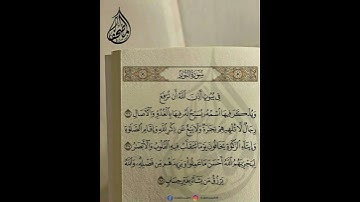 سُورَةُ النُّورِ
فِي بُيُوتٍ أَذِنَ اللَّهُ أَن تُرْفَعَ
وَيُذْكَرَ فِيهَا اسْمُهُ يُسَبِّحُ لَهُ فِيهَا بِالْغُدُوِّ وَالْآصَالِ
رِجَالٌ لَّا تُلْهِيهِمْ تِجَارَةٌ وَلَا بَيْعٌ عَن ذِكْرِ اللَّهِ وَإِقَامِ الصَّلَوٰةِ
وَإِيتَاءِ الزَّكَوٰةِ يَخَافُونَ يَوْمًا تَتَقَلَّبُ فِيهِ الْقُلُوبُ وَالْأَبْصَٰرُ
لِيَجْزِيَهُمُ اللَّهُ أَحْسَنَ مَا عَمِلُوا وَيَزِيدَهُم مِّن فَضْلِهِ وَاللَّهُ
يَرْزُقُ مَن يَشَاءُ بِغَيْرِ حِسَابٍ